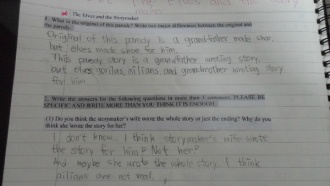 The Elves and the Storymaker
1. What is the original of this parody? Write two major differences between the original and the parody.
Original of this parody is a grandfather made shoe,
but elves made shoe for him.
This parody story is a grandfather writing story,
but elves, gorilas, aillians, and grandmother writing story
for him.
2. Write the answers for the following questions in more than 3 sentences. PLEASE BE
SPECIFIC AND WRITE MORE THAN YOU THINK IT IS ENOUGH.
(1) Do you think the storymaker's wife wrote the whole story or just the ending? Why do you
think she wrote the story for her?
I don't know. I think storymaker's wife wrote
the story for him? Not her?
And maybe she wrote the whole story. I think
aillians are not real,